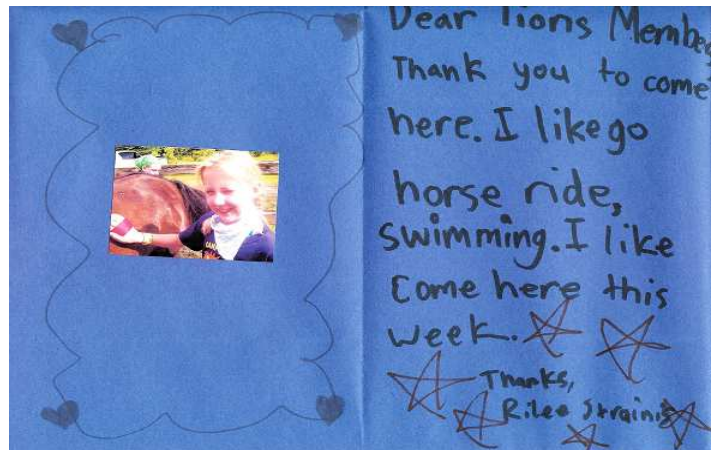 Dear Lions Member,
Thank you to come
here. I like go
horse ride,
swimming. I like
Come here this
week.
Thanks,
Rilee Strainis